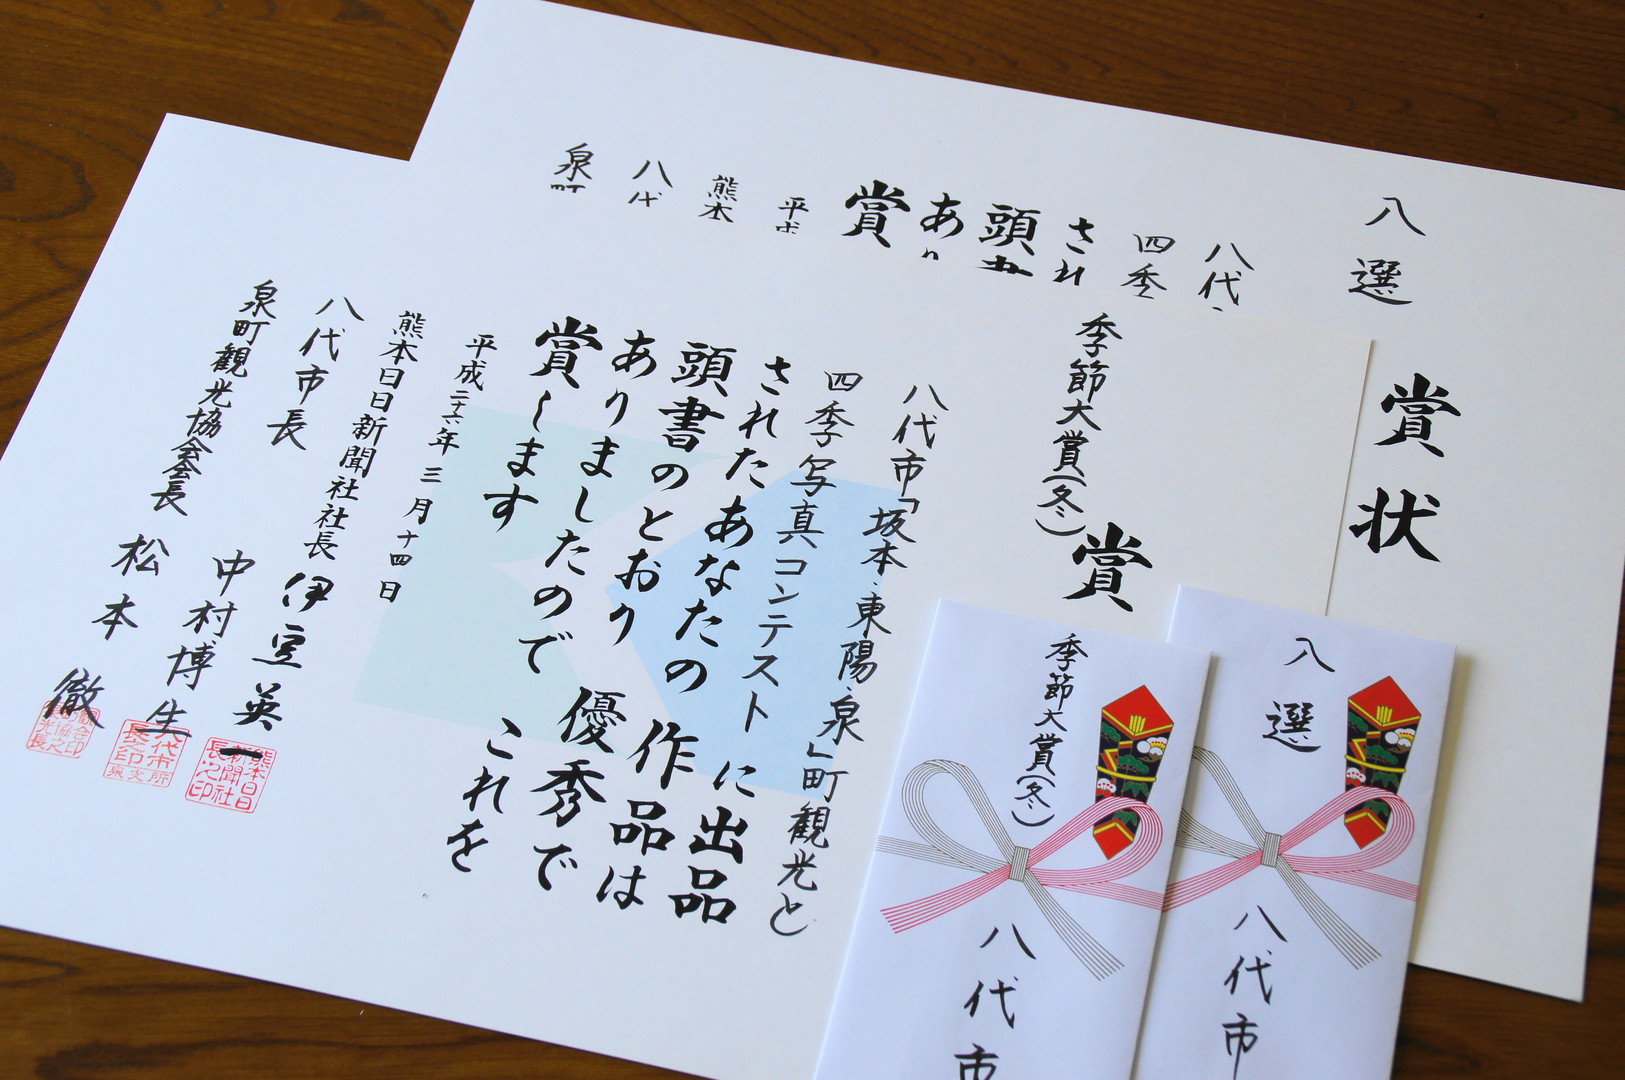 八選
賞状
八代
四季
され
頭書
あり
賞
平成
熊本
八代
泉町
季節大賞(冬)
賞
八代市「坂本・東陽・泉」町観光と
四季写真コンテストに出品
されたあなたの作品は
頭書のとおり優秀で
ありましたのでこれを
賞します
平成二十六年三月十四日
熊本日日新聞社社長 伊豆英一
八代市長 中村博生
泉町観光協会会長 松本徹
季節大賞(冬)
八代市
八選
八代市